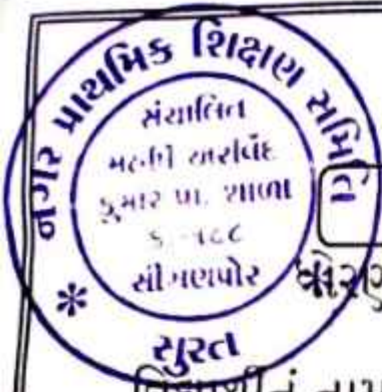 નગર પ્રાથમિક શિક્ષણ સમિતિ
સંચાલિત
મહર્ષિ અરવિંદ
કુમાર પ્રા. શાળા
ક્ર.-૧૮૮
સીંગણપોર
* સુરત